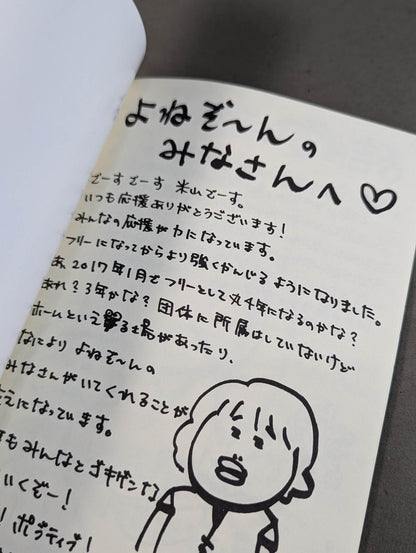 よねぞ〜んの
みなさんへ♡
でーすでーす 米山でーす。
いつも応援ありがとうございます!
みんなの応援が力になっています。
フリーになってからより強くかんじるようになりました。
あ、2017年1月でフリーとして丸4年になるのかな?
あれ?3年かな?団体に所属はしていないけど
ホームといえる場があったり、
なにより よねぞ〜んの
みなさんがいてくれることが
さえになっています。
もみんなとゴキゲンな
いくぞー!
!ポジティブ!